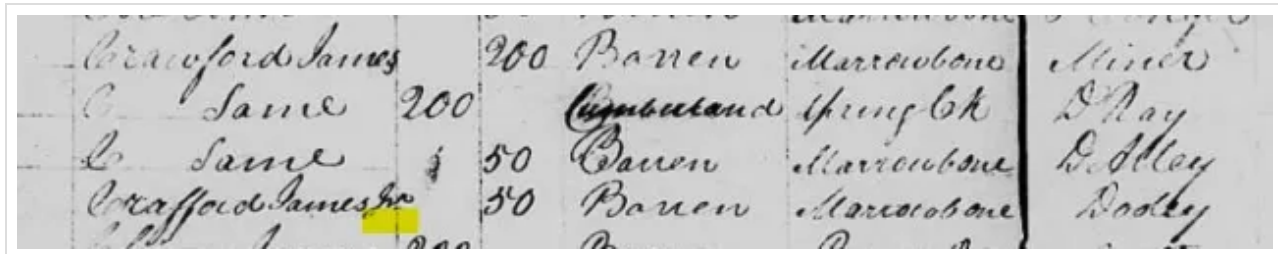 Marrowbone
Crawford James 200 Barren Marrowbone Miner
C Same 200 Cumberland Spring Ck D Ray
C Same 50 Barren Marrowbone D Alley
Crafford James Jr 50 Barren Marrowbone Dodey
200